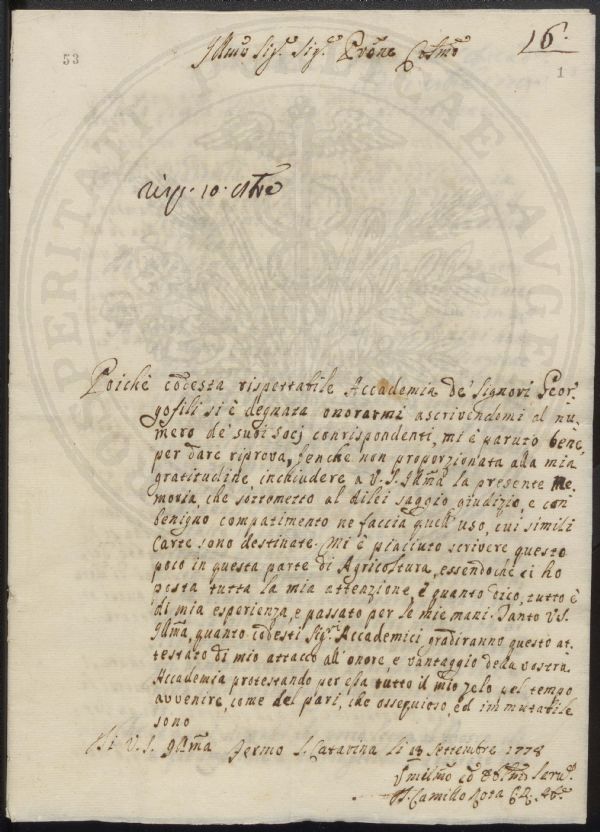 53
16.
1
Illmo Sig.r Sig.r Prone Colmo
risp. 10. Xbre
Poichè codesta rispettabile Accademia de' Signori Geor
gofili si è degnata onorarmi ascrivendomi al nu
mero de' suoi Socj conrispondenti, mi è paruto bene,
per dare riprova, benche non proporzionata alla mia
gratitudine, inchiudere a V. S. Illma la presente Me
moria, che sottometto al dilei saggio giudizio, e con
benigno compatimento ne faccia quell' uso, cui simili
Carte sono destinate. Mi è piaciuto scrivere questo
poco in questa parte di Agricoltura, essendoche ci ho
posta tutta la mia attenzione, e quanto dico, tutto è
di mia esperienza, e passato per le mie mani. Tanto V. S.
Illma, quanto codesti Sig.ri Accademici gradiranno questo at
testato di mio attacco all' onore, e vantaggio della vostra
Accademia protestando per essa tutto il mio zelo pel tempo
avvenire, come del pari, che ossequioso, ed immutabile
sono
Di V. S. Illma Fermo S. Catarina li Settembre 1778
Umilmo ed Obbmo Serv.e
D. Camillo
PROSPERITATI PUBLICAE AUGENDAE